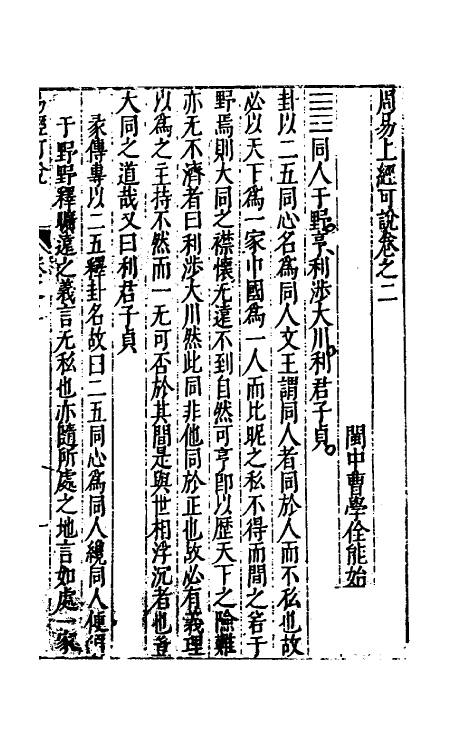 周易上經可說卷之二
閩中曹學佺能始
同人于野亨利涉大川利君子貞
卦以二五同心名為同人文王謂同人者同於人而不私也故
必以天下為一家中國為一人而比昵之私不得而間之若于
野焉則大同之襟懷无遠不到自然可亨即以歷天下之險難
亦无不濟者曰利涉大川然此同非他同於正也故必有義理
以為之主持不然而一无可否於其間是與世相浮沉者也豈
大同之道哉又曰利君子貞
彖傳專以二五釋卦名故曰二五同心為同人纔同人便
于野野釋曠遠之義言无私也亦隨所處之地言如處一家
易經可說